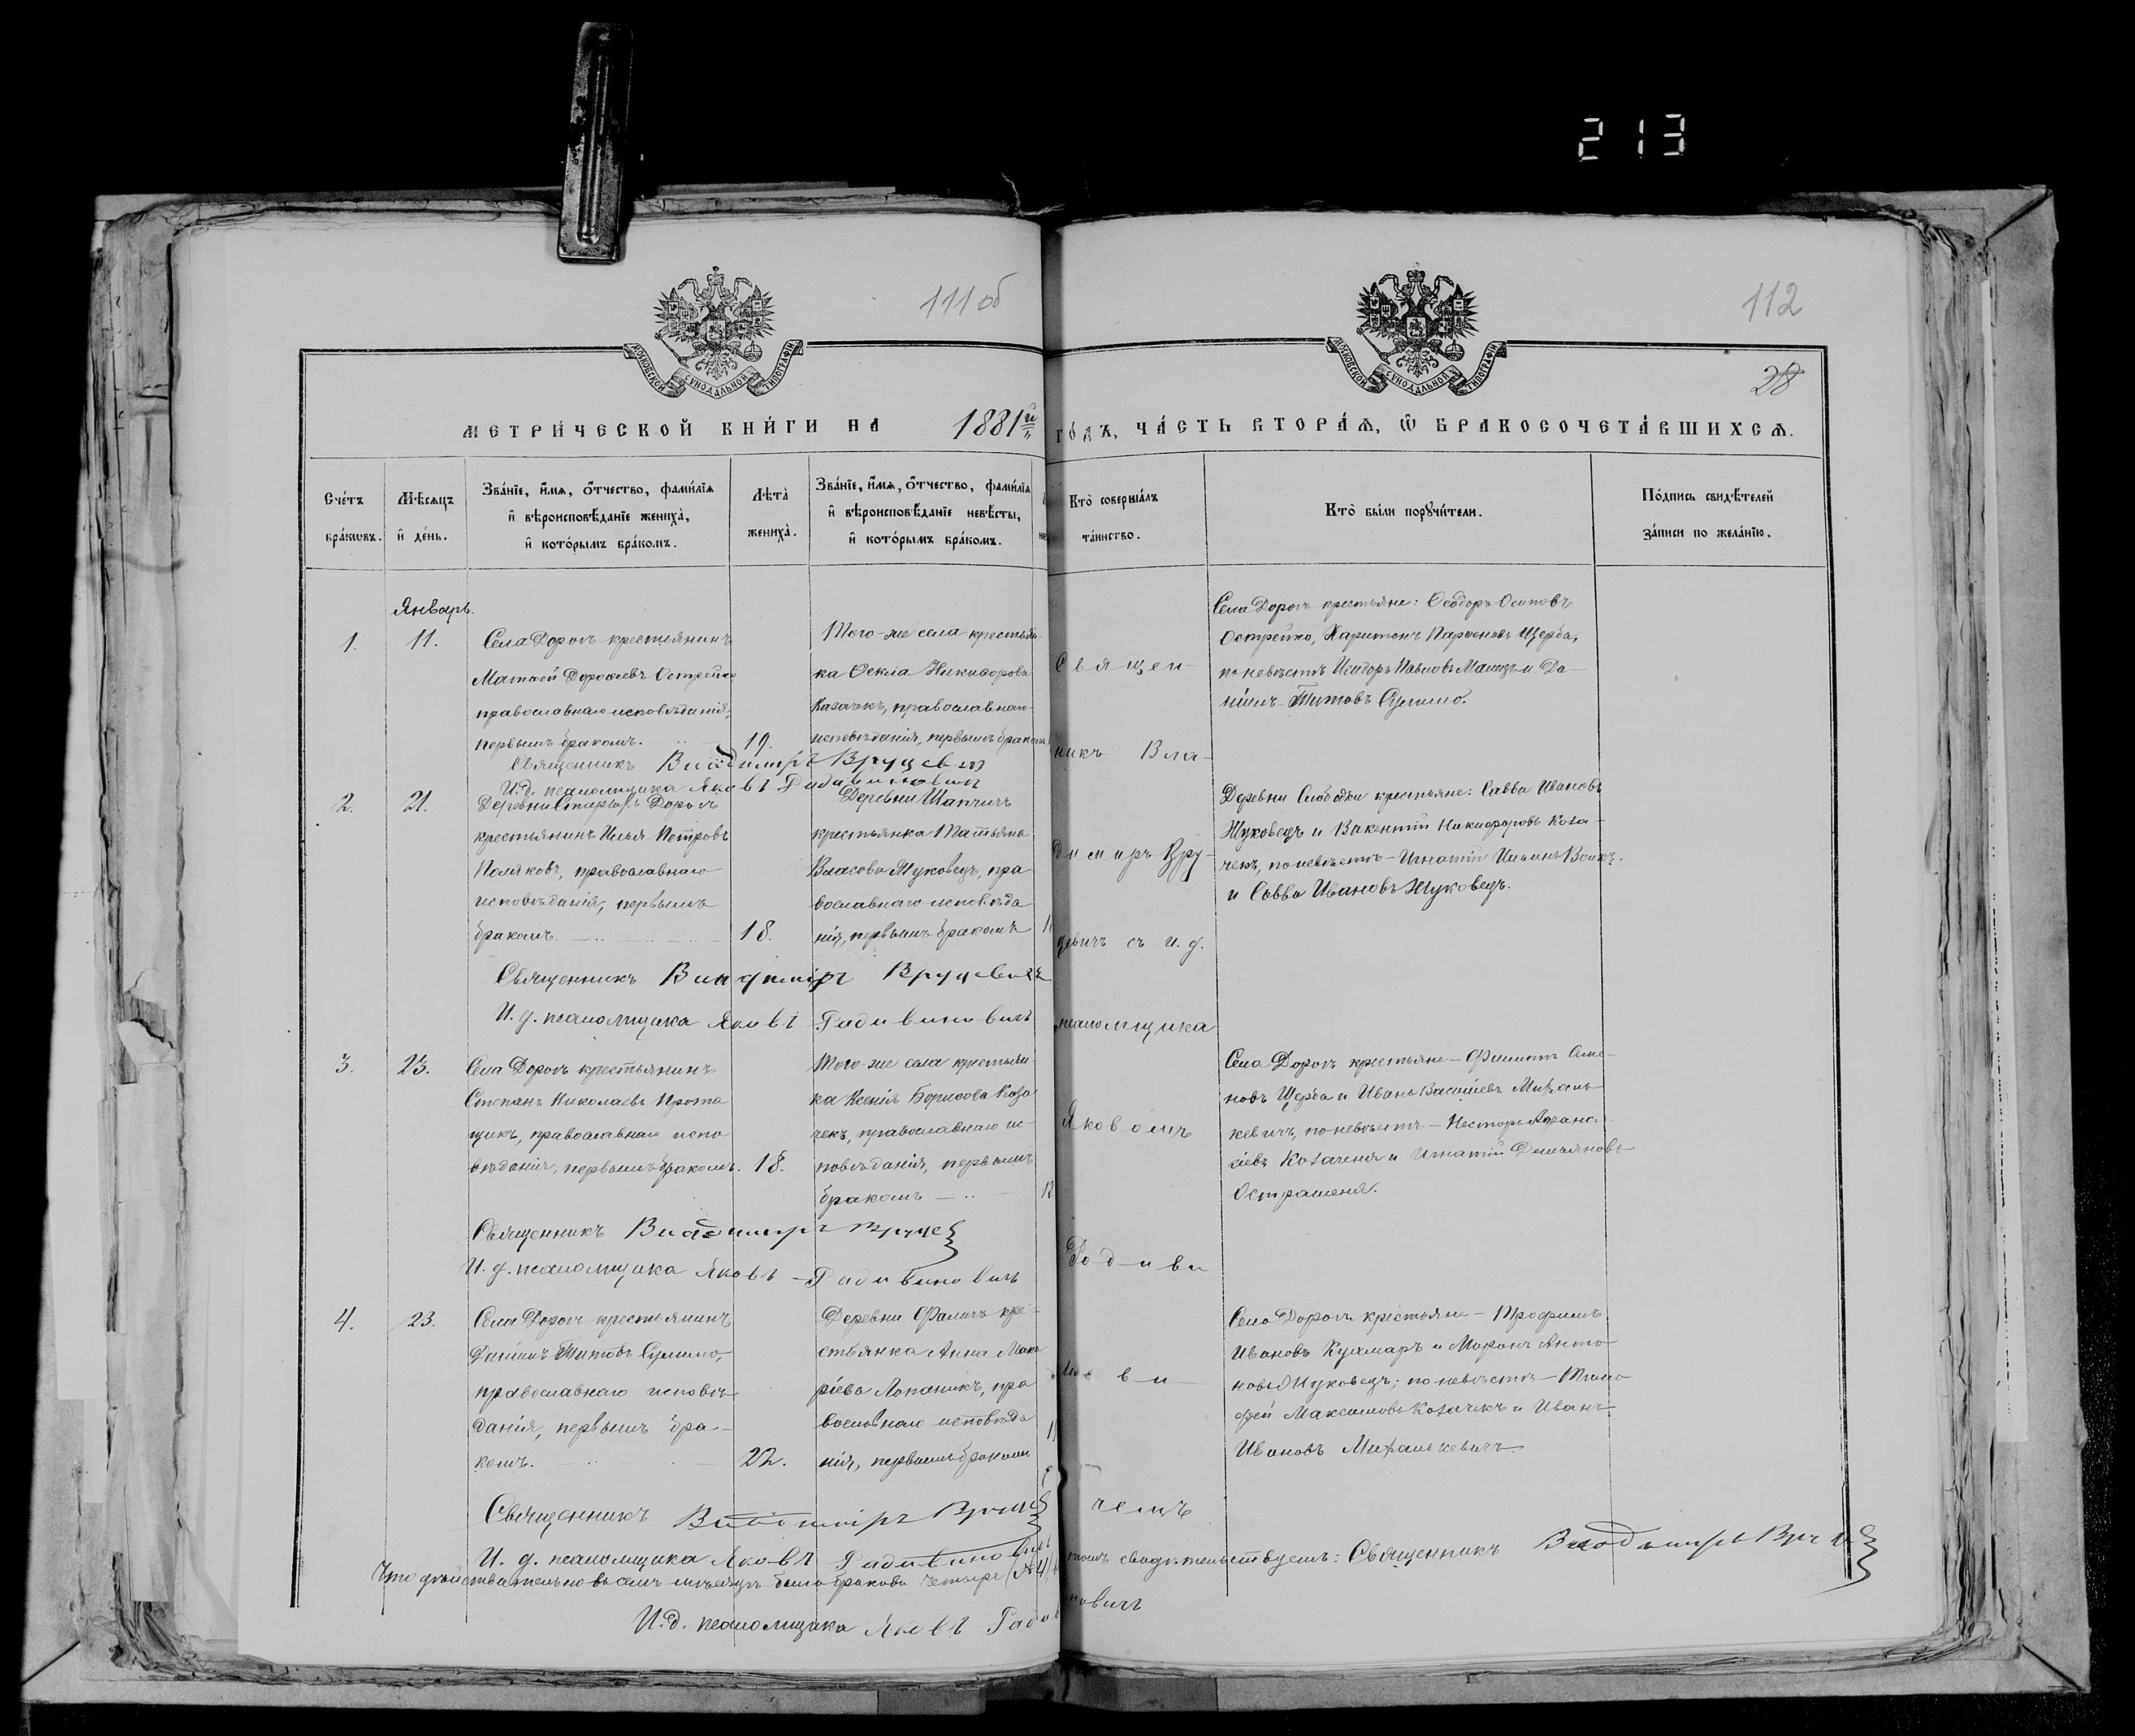 213
111 об
112
28
МОСКОВСКОЙ СѴНОДАЛЬНОЙ ТИПОГРАФІИ
МОСКОВСКОЙ СѴНОДАЛЬНОЙ ТИПОГРАФІИ
МЕТРИ́ЧЕСКОЙ КНИ́ГИ НА 1881й го́дъ, ча́сть втора́ѧ, ѽ бракосочета́вшихсѧ.
Сче́тъ бра́кѡвъ.
Мѣ́сѧцъ и҆ де́нь.
Зва́нїе, и҆́мѧ, ѻ҆́тчество, фами́лїѧ
и҆ вѣроисповѣ́данїе жениха̀,
и҆ кото́рымъ бра́комъ.
Лѣ́та̀ жениха̀.
Зва́нїе, и҆́мѧ, ѻ҆́тчество, фами́лїѧ
и҆ вѣроисповѣ́данїе невѣ́сты,
и҆ кото́рымъ бра́комъ.
Кто̀ соверша́лъ та́инство.
Кто̀ бы́ли порꙋчи́тели.
По́дпись свидѣ́телей
за́писи по жела́нїю.
Январь.
1. 11.
Села Дорогъ крестьянинъ
Матѳей Дороѳеевъ Острейко
православнаго исповѣданія,
первымъ бракомъ.
19.
Того-же села крестьян-
ка Ѳекла Никифорова
Казачекъ, православнаго
исповѣданія, первымъ бракомъ
Села Дорогъ крестьяне: Ѳеодоръ Осиповъ
Острейко, Харитонъ Парѳеновъ Щерба,
по невѣстѣ Исидоръ Павловъ и Да-
ніилъ Титовъ Сулимо.
Священникъ Владимиръ Вруцевич
И.д. псаломщика Яковъ Радивиновичъ
2. 21.
Деревни Старыхъ Дорогъ
крестьянинъ Илья Петровъ
Поляковъ, православнаго
исповѣданія, первымъ
бракомъ.
18.
Деревни Шапчицъ
крестьянка Татьяна
Власова Жуковецъ, пра
вославнаго исповѣда
нія, первымъ бракомъ
Деревни Слободки крестьяне: Савва Ивановъ
Жуковецъ и Викентій Никифоровъ Коза-
чекъ, по невѣстѣ - Игнатій Ильинъ
и Савва Ивановъ Жуковецъ.
Священникъ Владиміръ Вруцевичъ
И. д. псаломщика Яковъ Радивиновичъ
3. 23.
Села Дорогъ крестьянинъ
Степанъ Николаевъ Прота
щикъ, православнаго испо
вѣданія, первымъ бракомъ.
18.
Того-же села крестьян-
ка Ксенія Борисова Коза
чекъ, православнаго ис-
повѣданія, первымъ
бракомъ
18
Села Дорогъ крестьяне - Филиппъ Семе-
новъ Щерба и Иванъ Василіевъ Михаль-
кевичъ, по невѣстѣ - Несторъ Аѳана-
сіевъ Козаченя и Игнатій Демьяновъ
Острашеня.
Священникъ Владимиръ Вруце
И. д. псаломщика Яковъ Радивиновичъ
4. 23.
Села Дорогъ крестьянинъ
Даніилъ Титовъ Сулимо,
православнаго исповѣ
данія, первымъ бра-
комъ.
22.
Деревни Фаличъ кре-
стьянка Анна Мака
ріева Лопаникъ, пра
вославнаго исповѣда
нія, первымъ бракомъ
Села Дорогъ крестьяне - Трофимъ
Ивановъ Кухмаръ и Миронъ Анто-
новъ Жуковецъ; по невѣстѣ - Тимо
фей Максимовъ Козачекъ и Иванъ
Ивановъ Михалькевичъ.
Священникъ Владиміръ Вруце
И. д. псаломщика Яковъ Радивиновичъ
Священ-
никъ Вла-
димиръ Вру-
цевичъ съ и. д.
псаломщика
Яковомъ
Радиви
нови
чемъ
Что дѣйствительно въ семъ мѣсяцѣ было браковъ четыре (№ 4), въ томъ свидѣтельствуемъ: Священникъ Владимиръ Вруц
И.д. псаломщика Яковъ Радивиновичъ